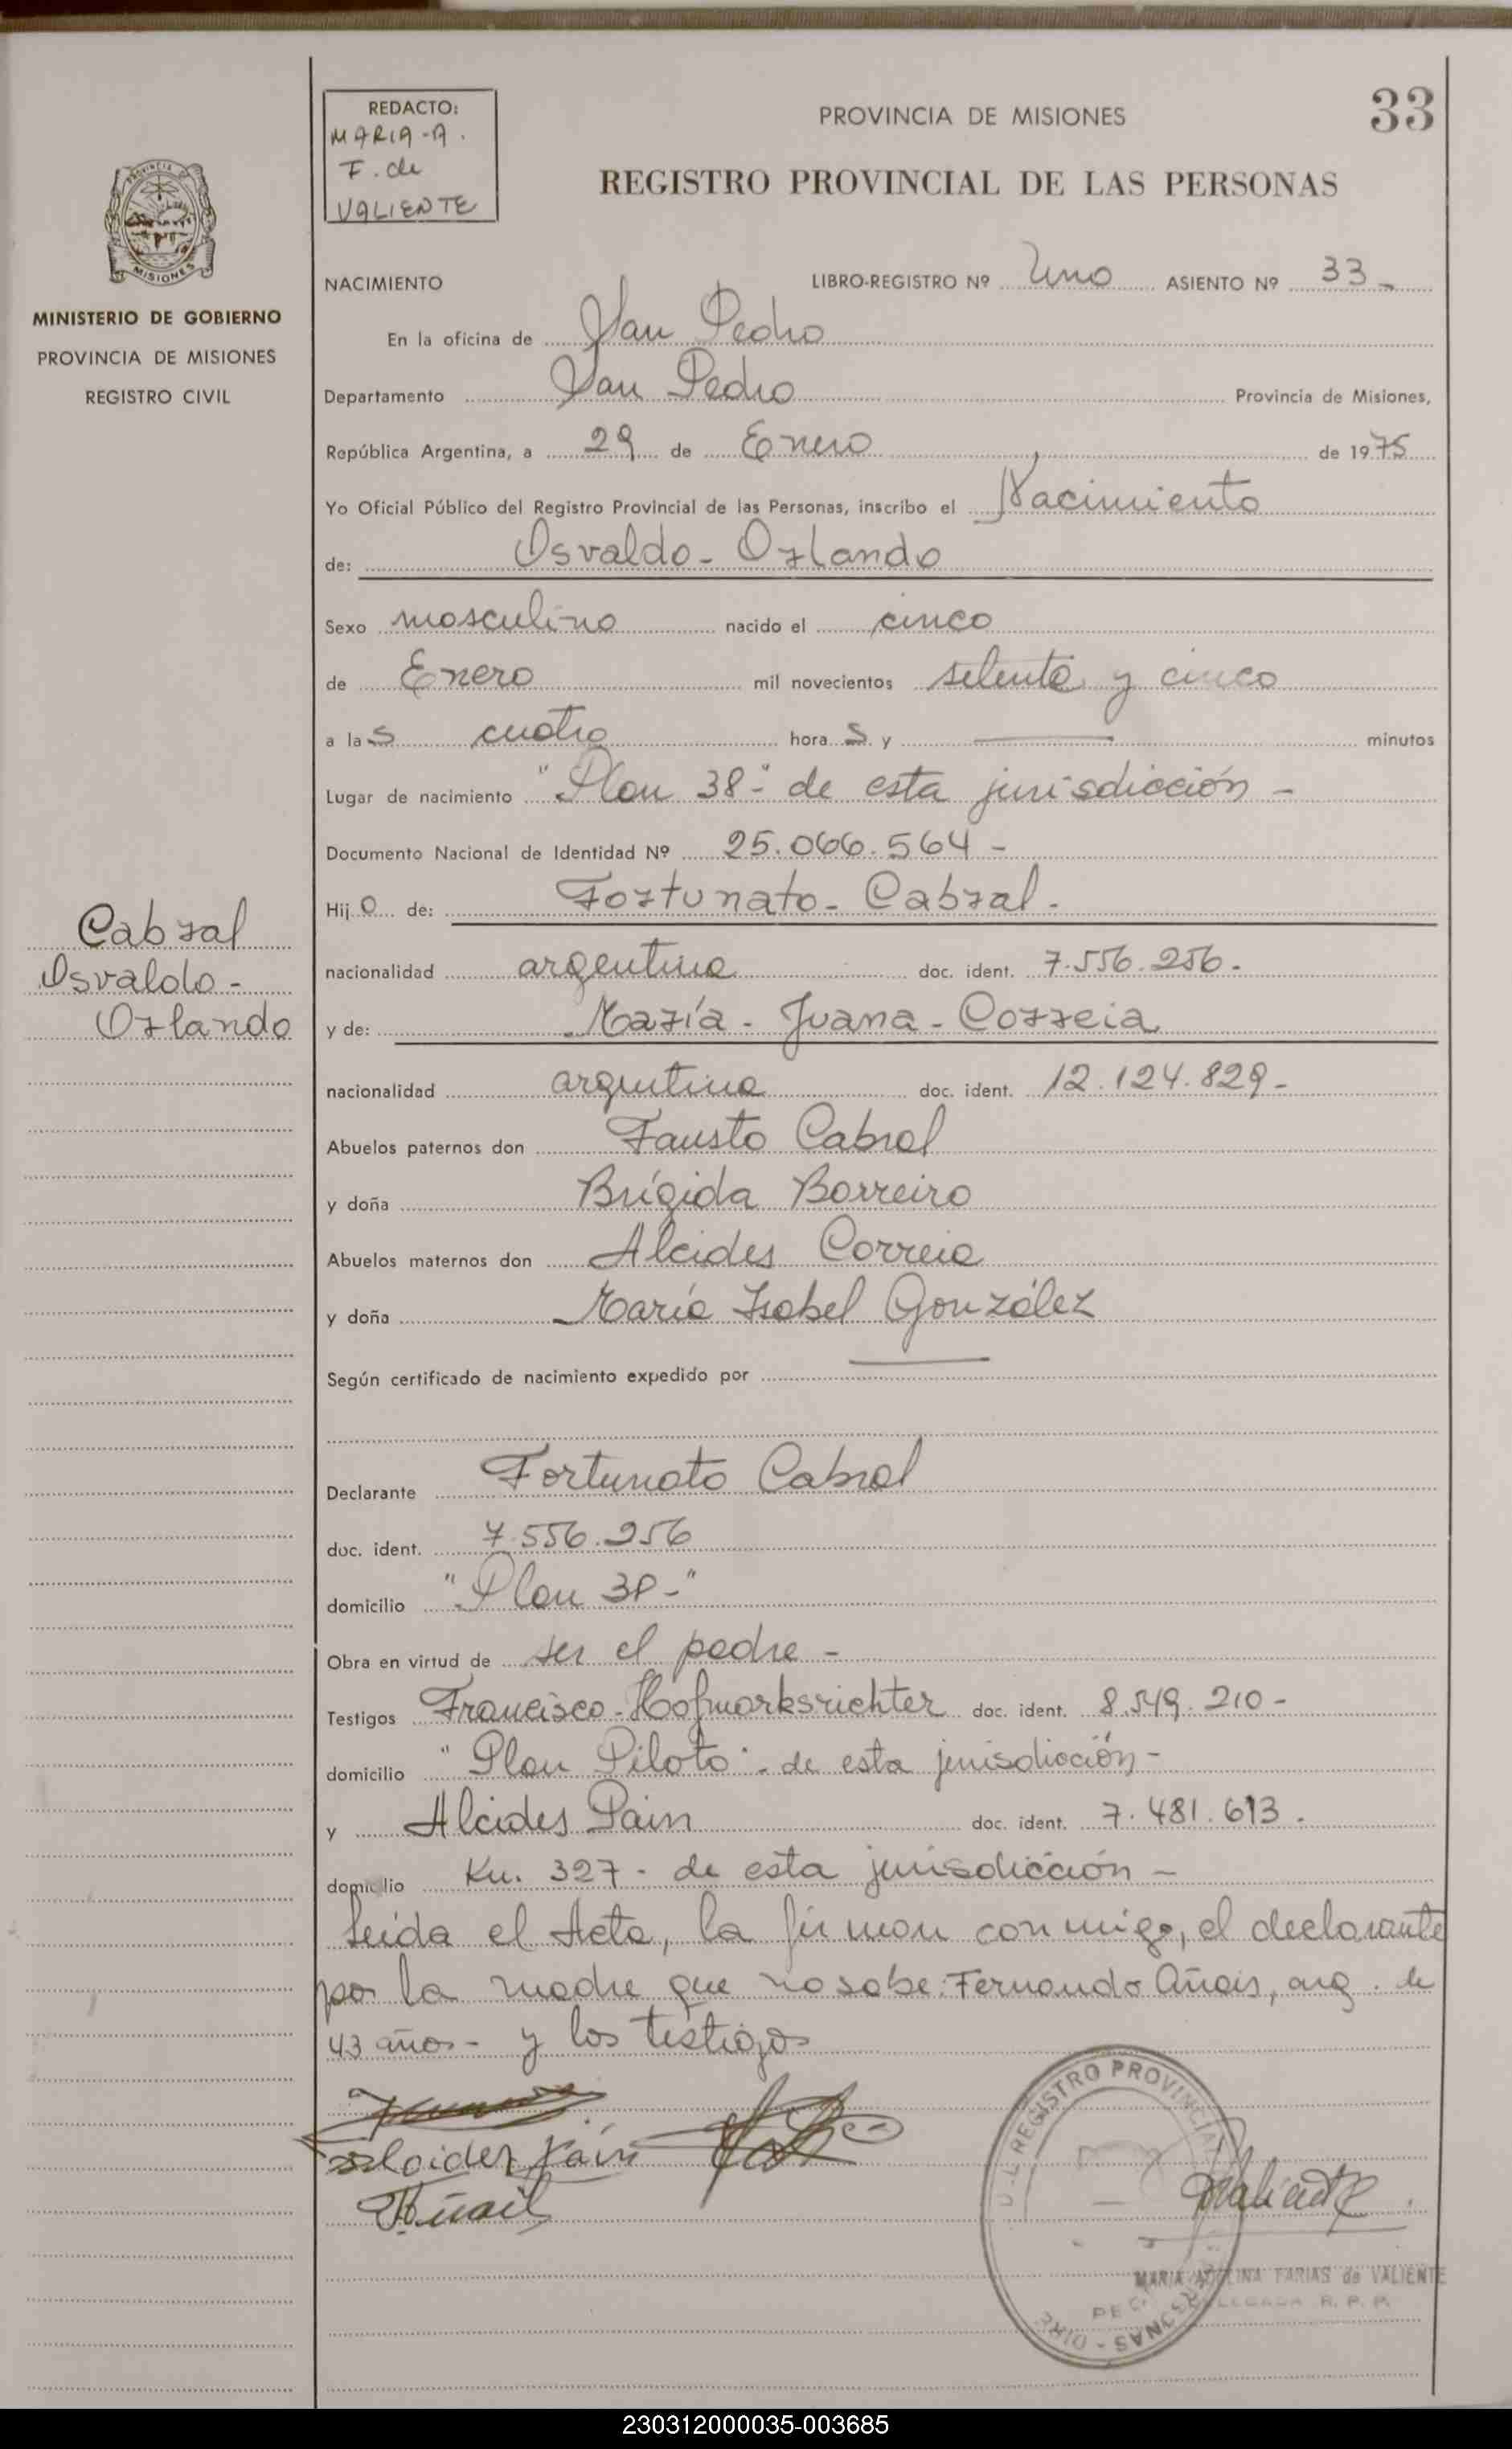 33
REDACTO:
MARIA-A.
F. de
VALIENTE
PROVINCIA DE MISIONES
REGISTRO PROVINCIAL DE LAS PERSONAS
MISIONES
MINISTERIO DE GOBIERNO
PROVINCIA DE MISIONES
REGISTRO CIVIL
NACIMIENTO LIBRO-REGISTRO Nº Uno ASIENTO Nº 33-
En la oficina de San Pedro
Departamento San Pedro Provincia de Misiones,
República Argentina, a 29 de Enero de 1975
Yo Oficial Público del Registro Provincial de las Personas, inscribo el Nacimiento
de: Osvaldo-Orlando
Sexo masculino nacido el cinco
de Enero mil novecientos setenta y cinco
a las cuatro horas y — minutos
Lugar de nacimiento "Plan 38-" de esta jurisdicción -
Documento Nacional de Identidad Nº 25.066.564-
Hijo de: Fortunato-Cabral-
Cabral
Osvaldo-
Orlando
nacionalidad argentina doc. ident. 7.556.256.
y de: María-Juana-Correia
nacionalidad argentina doc. ident. 12.124.829-
Abuelos paternos don Fausto Cabral
y doña Brígida Borreiro
Abuelos maternos don Alcides Correia
y doña María Isabel González
Según certificado de nacimiento expedido por —
Declarante Fortunato Cabral
doc. ident. 7.556.256
domicilio "Plan 38-"
Obra en virtud de ser el padre -
Testigos Francisco-Hofmarksrichter doc. ident. 8.549.210-
domicilio "Plan Piloto". de esta jurisdicción-
y Alcides Pain doc. ident. 7.481.613.
domicilio Km. 327- de esta jurisdicción-
Leída el Acta, la firman conmigo, el declarante
por la madre que no sabe: Fernando Añais, arg. de
43 años- y los testigos
Alcides Pain
Añais
Valiente
REGISTRO PROVINCIAL
PERSONAS - DIR.
MARIA ADELINA FARIAS de VALIENTE
R. P. P.
230312000035-003685